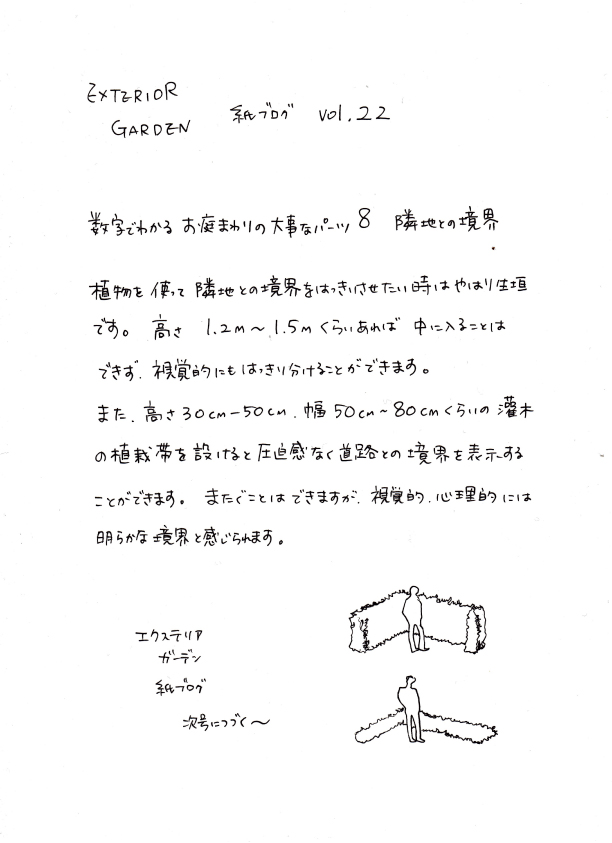 EXTERIOR
GARDEN 紙ブログ vol.22
数字でわかる お庭まわりの大事なパーツ 8 隣地との境界
植物を使って隣地との境界をはっきりさせたい時はやはり生垣
です。高さ 1.2m〜1.5mくらいあれば中に入ることは
できず、視覚的にもはっきり分けることができます。
また、高さ30cm-50cm、幅50cm~80cmくらいの灌木
の植栽帯を設けると圧迫感なく道路との境界を表示する
ことができます。またぐことはできますが、視覚的、心理的には
明らかな境界と感じられます。
エクステリア
ガーデン
紙ブログ
次号につづく〜